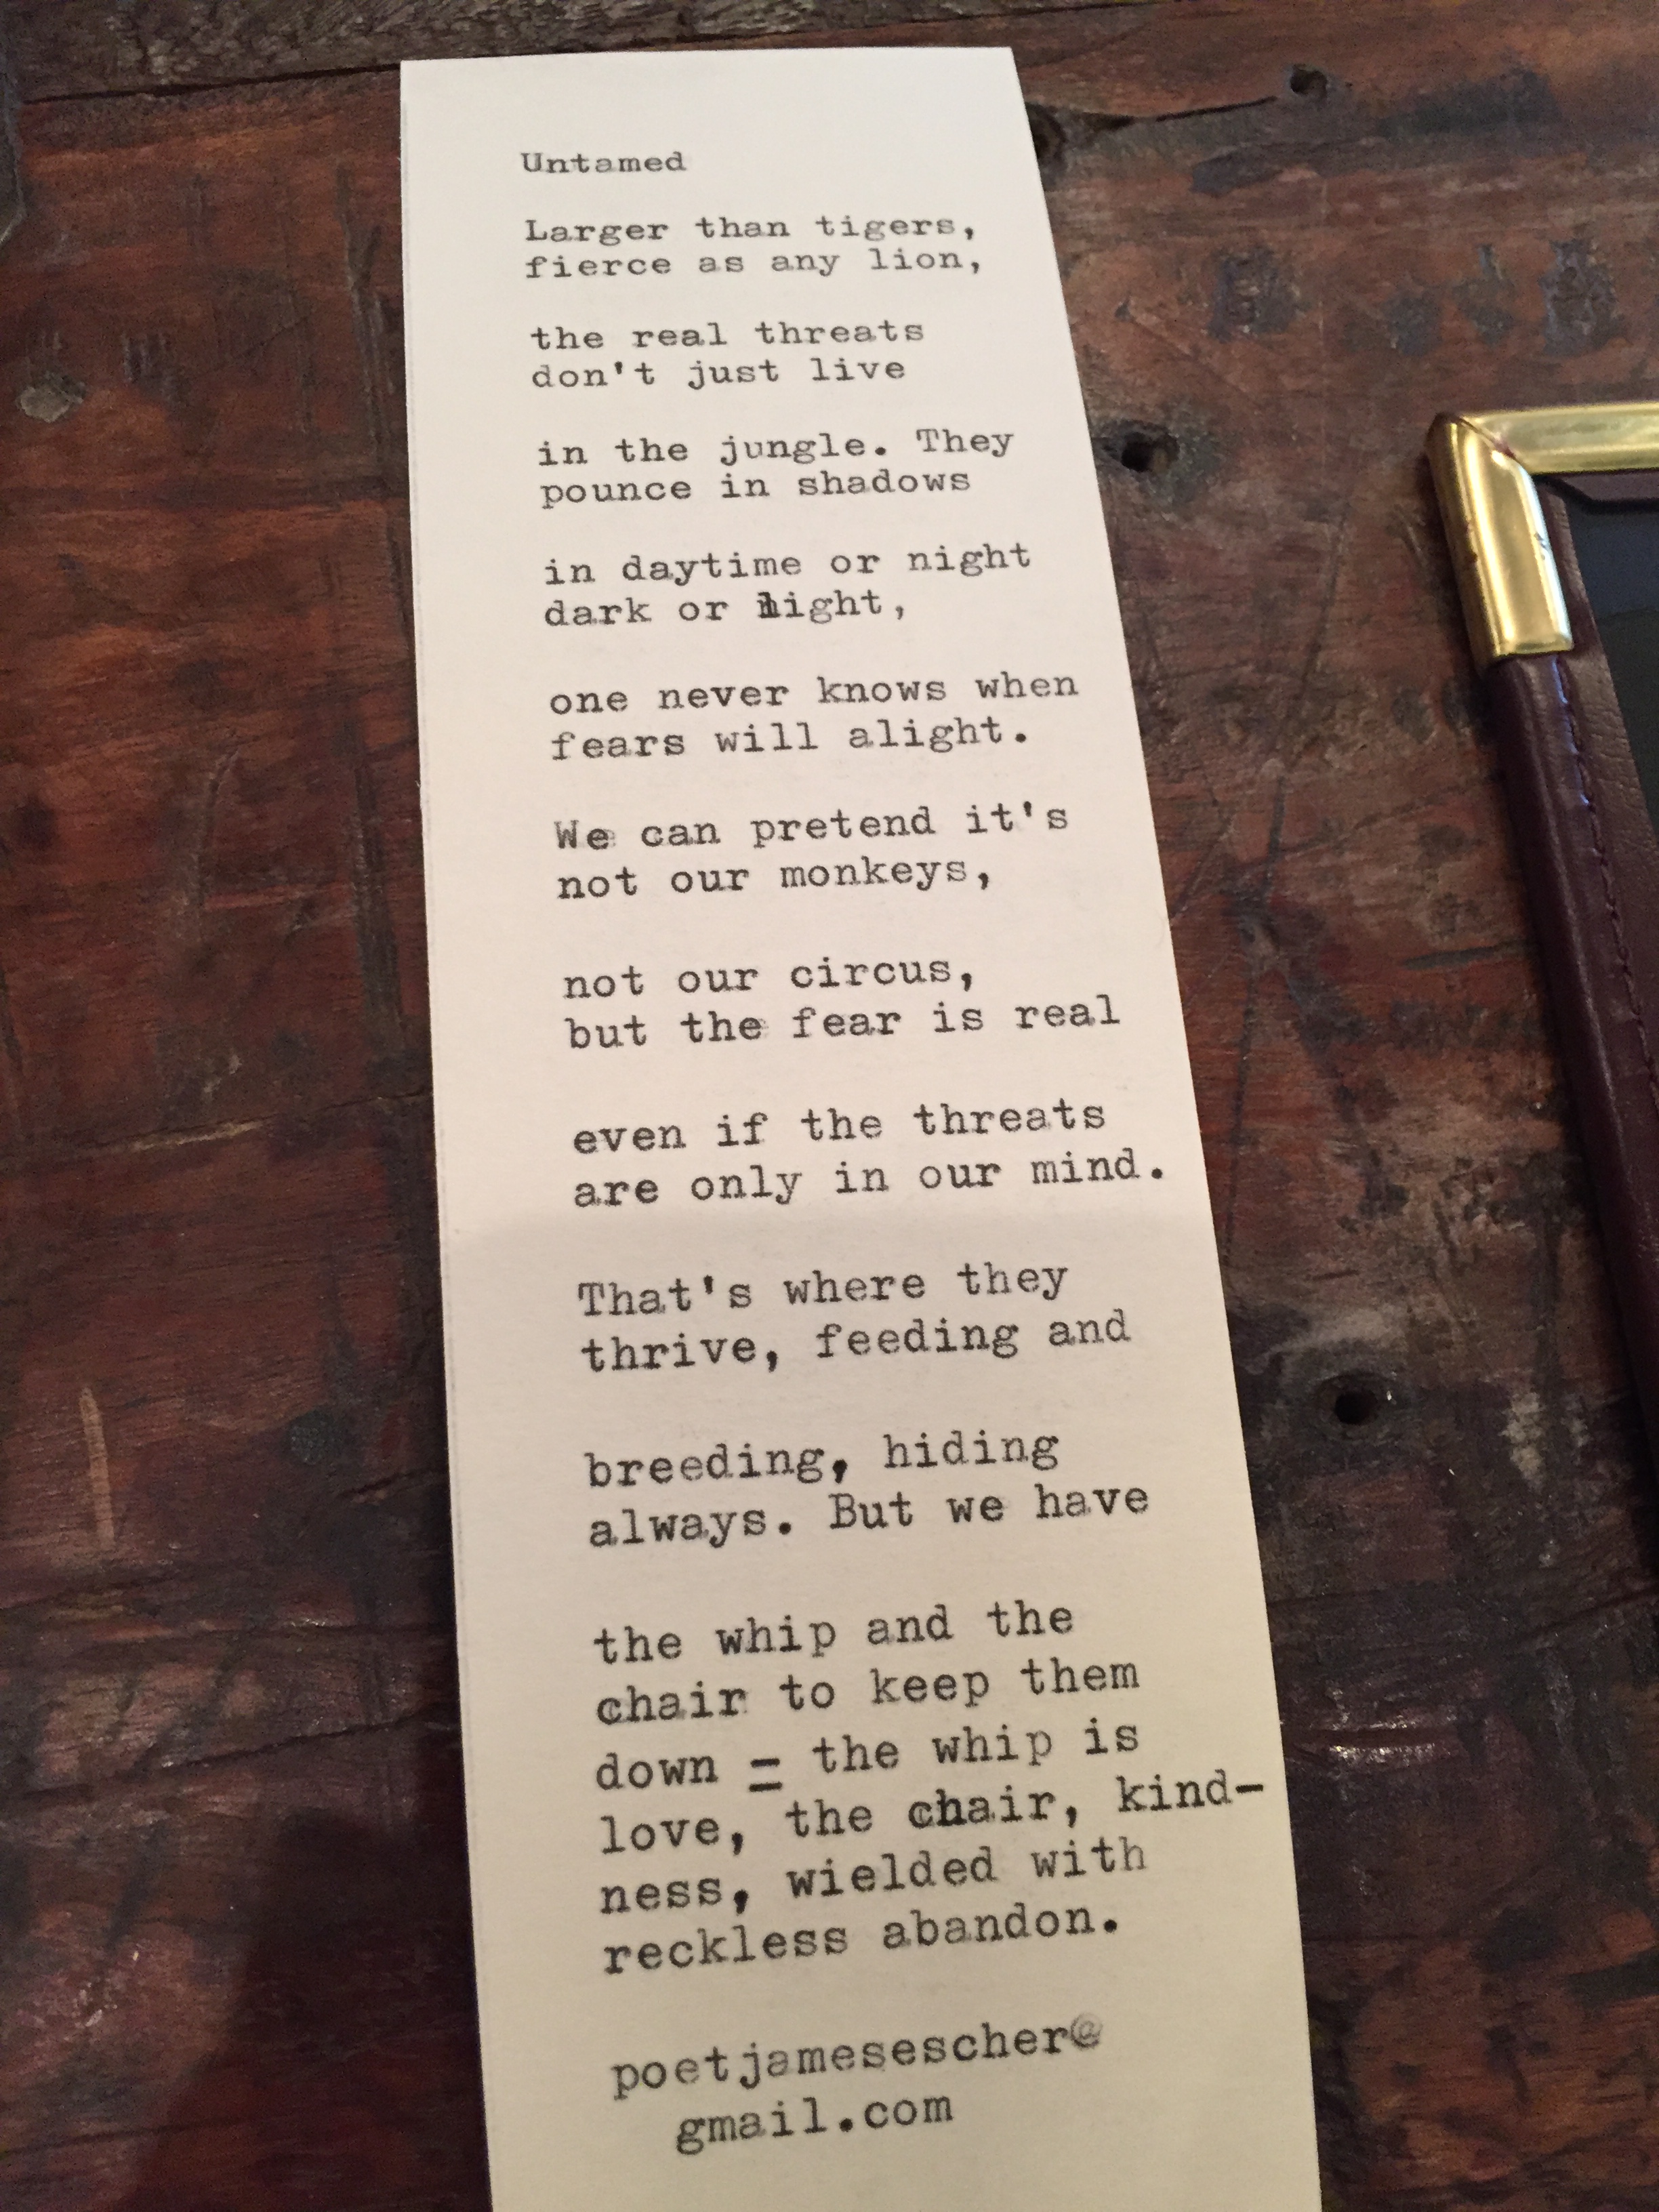 Untamed
Larger than tigers,
fierce as any lion,
the real threats
don't just live
in the jungle. They
pounce in shadows
in daytime or night
dark or light,
one never knows when
fears will alight.
We can pretend it's
not our monkeys,
not our circus,
but the fear is real
even if the threats
are only in our mind.
That's where they
thrive, feeding and
breeding, hiding
always. But we have
the whip and the
chair to keep them
down = the whip is
love, the chair, kind-
ness, wielded with
reckless abandon.
poetjamesescher@
gmail.com